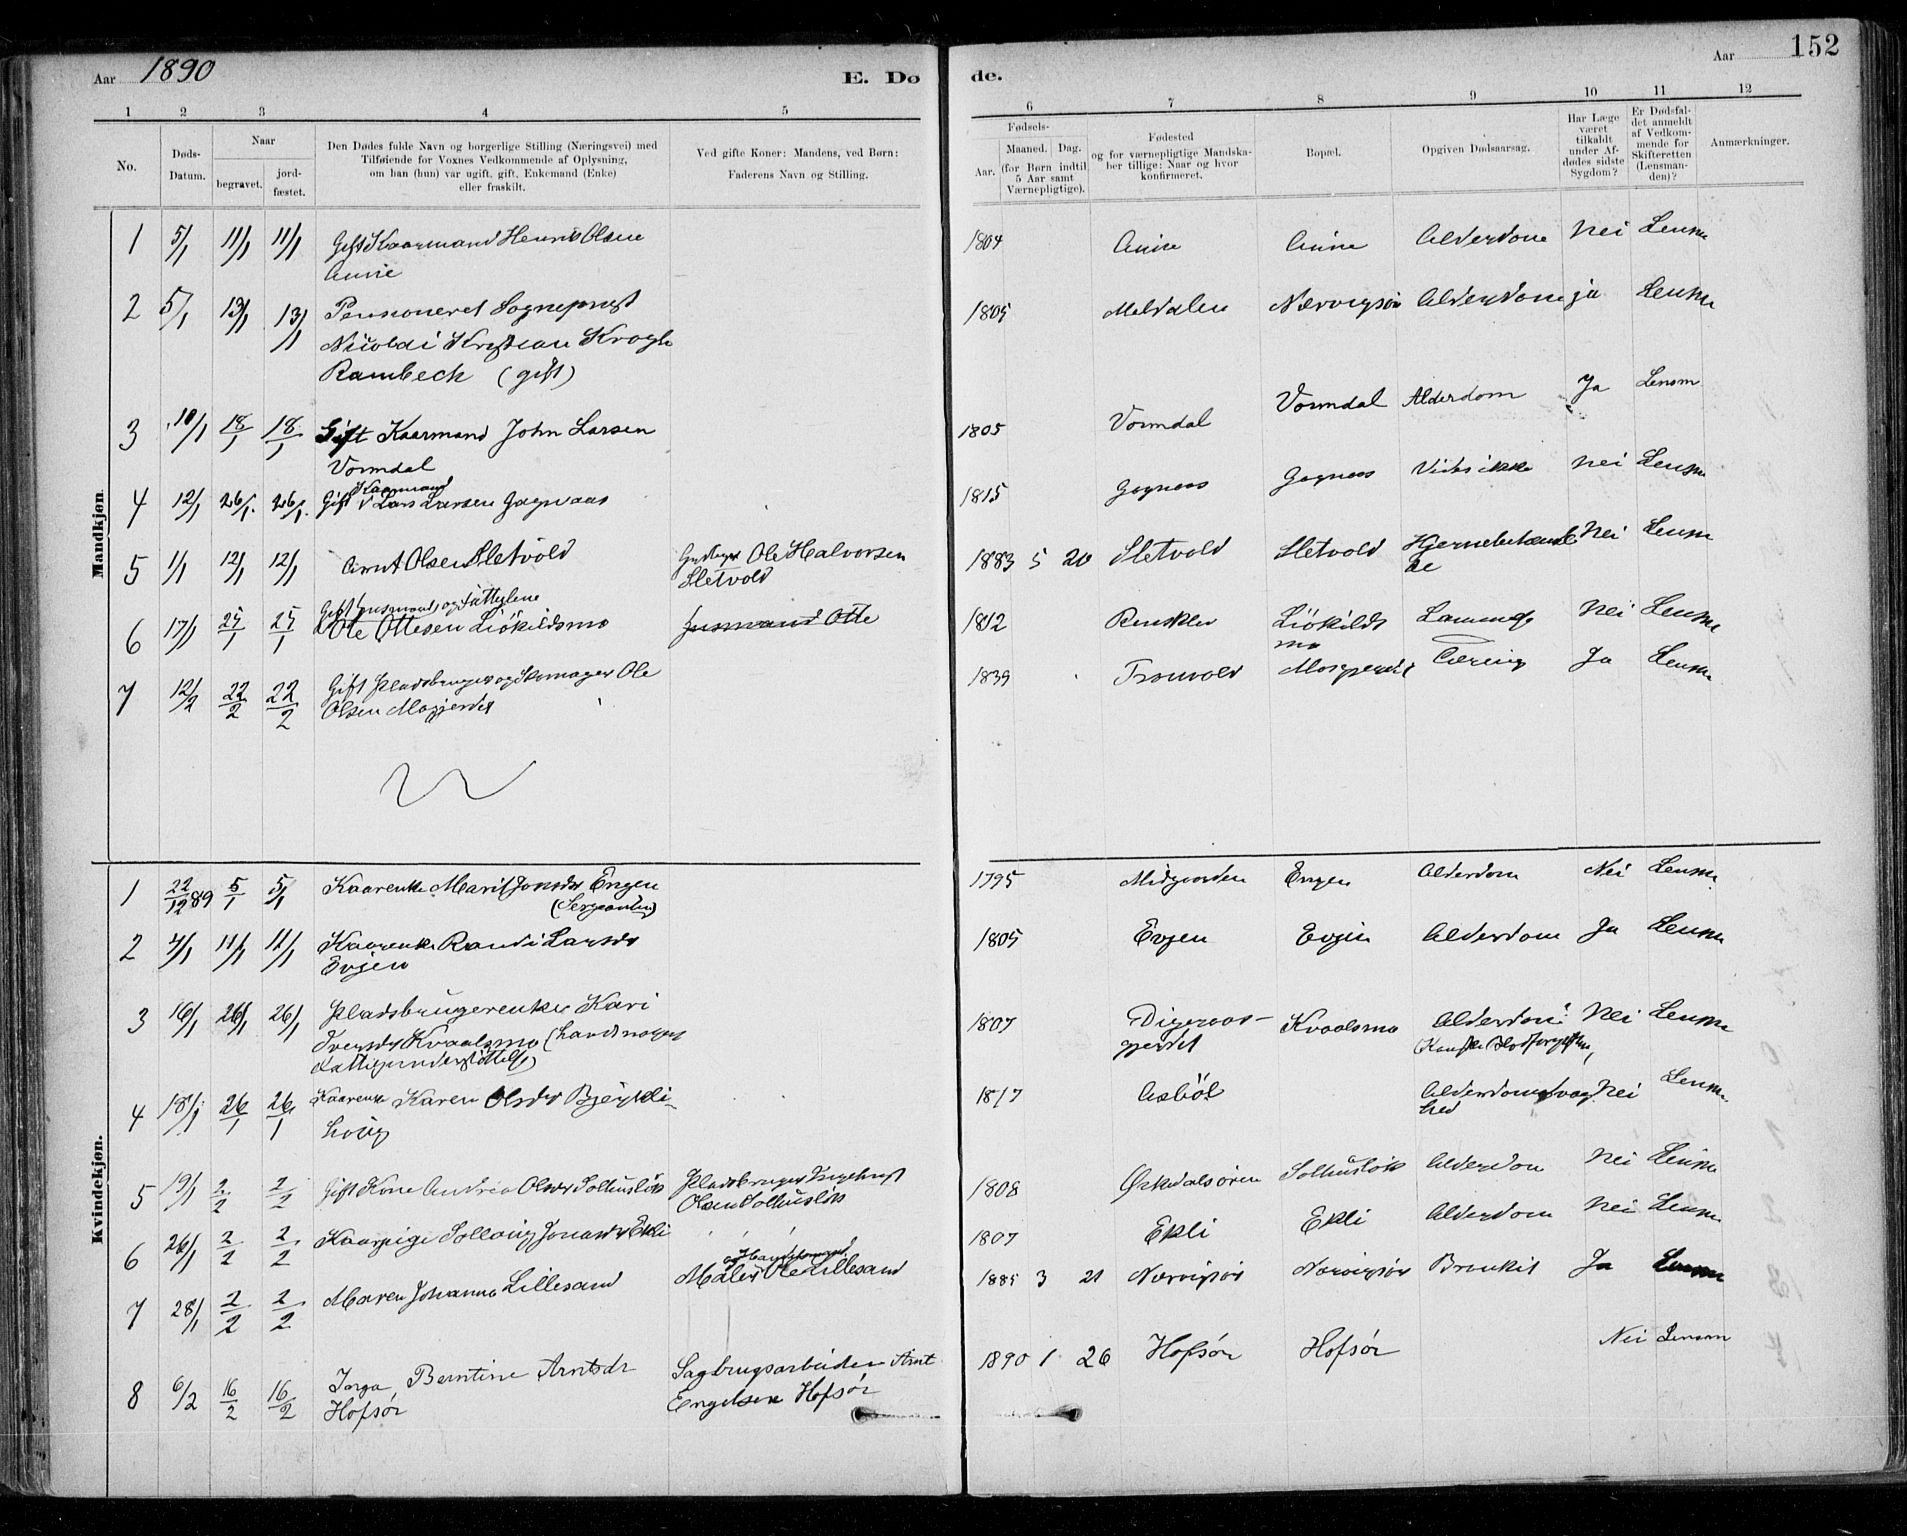 Aar 1890 E. Dø de. Aar 152
1 2 3 4 5 6 7 8 9 10 11 12
No.
Døds-Datum.
Naar
begravet.
jord-fæstet.
Den Dødes fulde Navn og borgerlige Stilling (Næringsvei) med
Tilføiende for Voxnes Vedkommende af Oplysning,
om han (hun) var ugift, gift, Enkemand (Enke)
eller fraskilt.
Ved gifte Koner: Mandens, ved Børn:
Faderens Navn og Stilling.
Fødsels-
Aar. Maaned. Dag.
(for Børn indtil
5 Aar samt
Værnepligtige).
Fødested
og for værnepligtige Mandska-
ber tillige: Naar og hvor
konfirmeret.
Bopæl.
Opgiven Dødsaarsag.
Har Læge
været
tilkaldt
under Af-
dødes sidste
Sygdom?
Er Dødsfal-
det anmeldt
af Vedkom-
mende for
Skifteretten
(Lensman-
den)?
Anmærkninger.
Mandkjøn.
1 5/1 11/1 11/1 Gift Kaarmand Henrik Olsen 1804 Aune Aune Alderdom Nei Lensm
Aune
2 5/1 13/1 13/1 Pensioneret Sogneprest 1805 Meldalen Nærvigsør Alderdom ja Lensm
Nicolai Kristian Krogh
Rambeck (gift)
3 10/1 18/1 18/1 Gift Kaarmand John Larsen 1805 Vormdal Vormdal Alderdom Ja Lensm
Vormdal
4 12/1 26/1. 26/1. Gift Kaarmand Lars Larsen Gagnaas 1815 Gagnaas Gagnaas Vides ikke Nei Lensm
5 1/1 12/1 12/1 Arnt Olsen Sletvold Ole Halvorsen 1883 5 20 Sletvold Sletvold Nei Lensm
Sletvold
Gift Husmand, og
6 17/1 25/1 25/1 Ole Ottesen Husmand Otte 1812 Nei Lensm
mo
7 12/2 22/2 22/2 Gift Pladsbruger og Skomager Ole 1839 Tronvold Tæring Ja Lensm
Olsen
Kvindekjøn.
1 22/12 89 5/1 5/1 Kaarenke Marit Jonsdr Engen 1795 Midgaarden Engen Alderdom Nei Lensm.
(Sergeanten)
2 4/1 11/1 11/1 Kaarenke Randi Larsdr 1805 Evjen Evjen Alderdom Ja Lensm
Evjen
3 16/1 26/1 26/1 Pladsbrugerenke Kari 1807 Digeraas- Kvaalsmo Alderdom. Nei Lensm
Iversdr Kvaalsmo gjerdet
Fattigunderstøttelse)
4 18/1 26/1 26/1 Kaarenke Karen Olsdr 1817 Asbøl Alderdomssvag Nei Lensm.
hed
5 19/1 2/2 2/2 Gift Kone Andrea Olsdr Solhusløk Pladsbruger Ingebrigt 1808 Ørkedalsøren Solhusløk Alderdom Nei Lensm
Olsen Solhusløk
6 26/1 2/2 2/2 Kaarpige Sollaug Jonasdr Ekli 1807 Ekli Ekli Alderdom Nei Lensm
7 28/1 2/2 2/2 Maren Johanna Lillesand Maler og Handelsmand Ole Lillesand 1885 3 21 Nærvigsør Nærvigsør Bronkit Ja Lensm
8 6/2 16/2 16/2 Inga Berntine Arntsdr Sagbrugsarbeider Arnt 1890 1 26 Hofsør Hofsør Nei Lensm
Hofsør Engelsen Hofsør